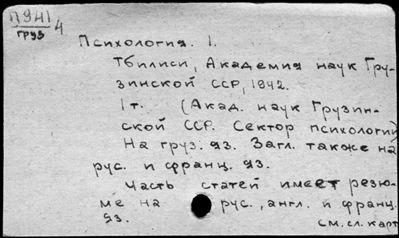 П941
ГРУЗ 4
Психология. 1.
Тбилиси, Академия наук Гру-
зинской ССР, 1942.
1 т. (Акад. наук Грузин-
ской ССР. Сектор психологии
На груз. яз. Загл. также на
рус. и франц. яз.
Часть статей имеет резю-
ме на рус., англ. и франц.
яз.
см. сл. карт